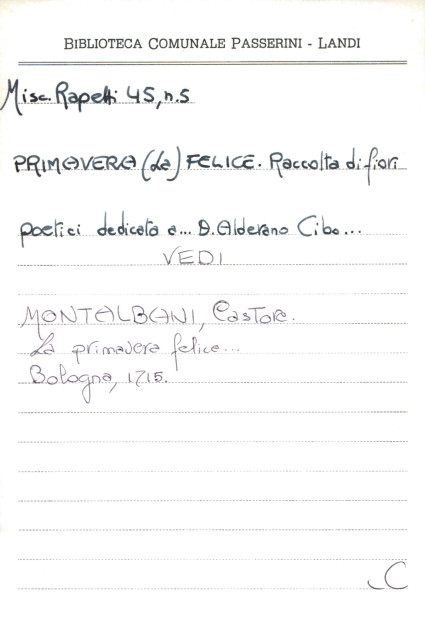 BIBLIOTECA COMUNALE PASSERINI - LANDI
Misc. Rapetti 45, n.5
PRIMAVERA (La) FELICE. Raccolta di fiori
poetici dedicata a... D. Alderano Cibo...
VEDI
MONTALBANI, Castore.
La primavera felice...
Bologna, 1715.
C